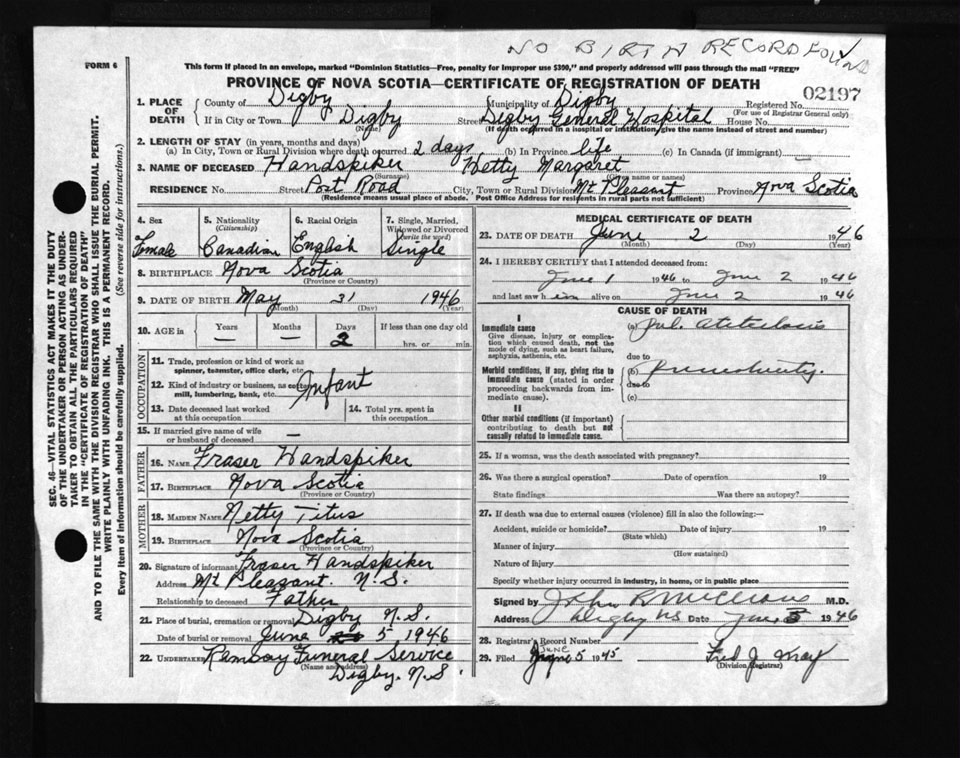 NO BIRTH RECORD FOUND
FORM 6
This form if placed in an envelope, marked "Dominion Statistics—Free, penalty for improper use $300," and properly addressed will pass through the mail "FREE"
PROVINCE OF NOVA SCOTIA—CERTIFICATE OF REGISTRATION OF DEATH
02197
1. PLACE OF DEATH
County of Digby Municipality of Digby Registered No.
(For use of Registrar General only)
If in City or Town Digby Street Digby General Hospital House No.
(Name) (If death occurred in a hospital or institution, give the name instead of street and number)
2. LENGTH OF STAY (in years, months and days)
(a) In City, Town or Rural Division where death occurred 2 days (b) In Province life (c) In Canada (if immigrant) —
3. NAME OF DECEASED Handspiker Hetty Margaret
(Surname) (Given name or names)
RESIDENCE No. Street Post Road City, Town or Rural Division Mt Pleasant Province Nova Scotia
(Residence means usual place of abode. Post Office Address for residents in rural parts not sufficient)
4. Sex
Female
5. Nationality
(Citizenship)
Canadian
6. Racial Origin
English
7. Single, Married, Widowed or Divorced
(write the word)
Single
8. BIRTHPLACE Nova Scotia
(Province or Country)
9. DATE OF BIRTH May 31 1946
(Month) (Day) (Year)
10. AGE in Years Months Days If less than one day old
— — 2 hrs. or min.
OCCUPATION
11. Trade, profession or kind of work as
spinner, teamster, office clerk, etc.
12. Kind of industry or business, as
mill, lumbering, bank, etc. Infant
13. Date deceased last worked at this occupation
14. Total yrs. spent in this occupation
15. If married give name of wife or husband of deceased —
FATHER
16. NAME Fraser Handspiker
17. BIRTHPLACE Nova Scotia
(Province or Country)
MOTHER
18. MAIDEN NAME Netty Titus
19. BIRTHPLACE Nova Scotia
(Province or Country)
20. Signature of informant Fraser Handspiker
Address Mt Pleasant. N.S.
Relationship to deceased Father
21. Place of burial, cremation or removal Digby N.S.
Date of burial or removal June 5 1946
22. UNDERTAKER Ramsay Funeral Service
(Name and address)
Digby. N.S.
MEDICAL CERTIFICATE OF DEATH
23. DATE OF DEATH June 2 1946
(Month) (Day) (Year)
24. I HEREBY CERTIFY that I attended deceased from:
June 1 1946 to June 2 1946
and last saw h alive on June 2 1946
CAUSE OF DEATH
I
Immediate cause
Give disease, injury or complication which caused death, not the mode of dying, such as heart failure, asphyxia, asthenia, etc.
(a)
due to
Morbid conditions, if any, giving rise to immediate cause (stated in order proceeding backwards from immediate cause).
(b) Prematurity.
due to
(c)
II
Other morbid conditions (if important) contributing to death but not causally related to immediate cause.
25. If a woman, was the death associated with pregnancy?
26. Was there a surgical operation? Date of operation 19
State findings Was there an autopsy?
27. If death was due to external causes (violence) fill in also the following:—
Accident, suicide or homicide? Date of injury 19
(State which)
Manner of injury
(How sustained)
Nature of injury
Specify whether injury occurred in industry, in home, or in public place
Signed by John R M.D.
Address Digby NS Date June 1946
28. Registrar's Record Number
29. Filed June 5 1945 Fred J.
(Division Registrar)
SEC. 46—VITAL STATISTICS ACT MAKES IT THE DUTY
OF THE UNDERTAKER OR PERSON ACTING AS UNDER-
TAKER TO OBTAIN ALL THE PARTICULARS REQUIRED
IN THE "CERTIFICATE OF REGISTRATION OF DEATH"
AND TO FILE THE SAME WITH THE DIVISION REGISTRAR WHO SHALL ISSUE THE BURIAL PERMIT.
WRITE PLAINLY WITH UNFADING INK. THIS IS A PERMANENT RECORD.
Every item of information should be carefully supplied. (See reverse side for instructions.)